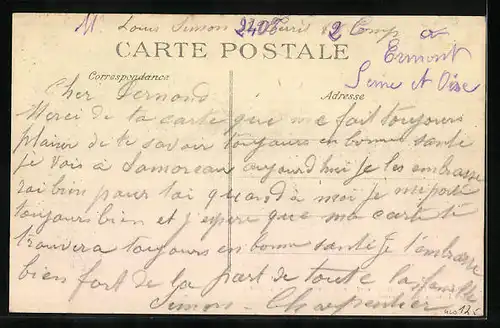 Mr Louis Simon 240e 2 Comp
CARTE POSTALE
Ermont
Correspondance
Adresse
Seine et Oise
Cher Fernand
Merci de ta carte que me fait toujours
plaisir de te savoir toujours en bonne sante
je vois à Samoreau aujourd'hui je les embrasse
rai bien pour toi quand à moi je me porte
toujours bien et j'espere que ma carte te
trouvera toujours en bonne sante Je t'embrasse
bien fort de la part de toute la famille
Simon Charpentier